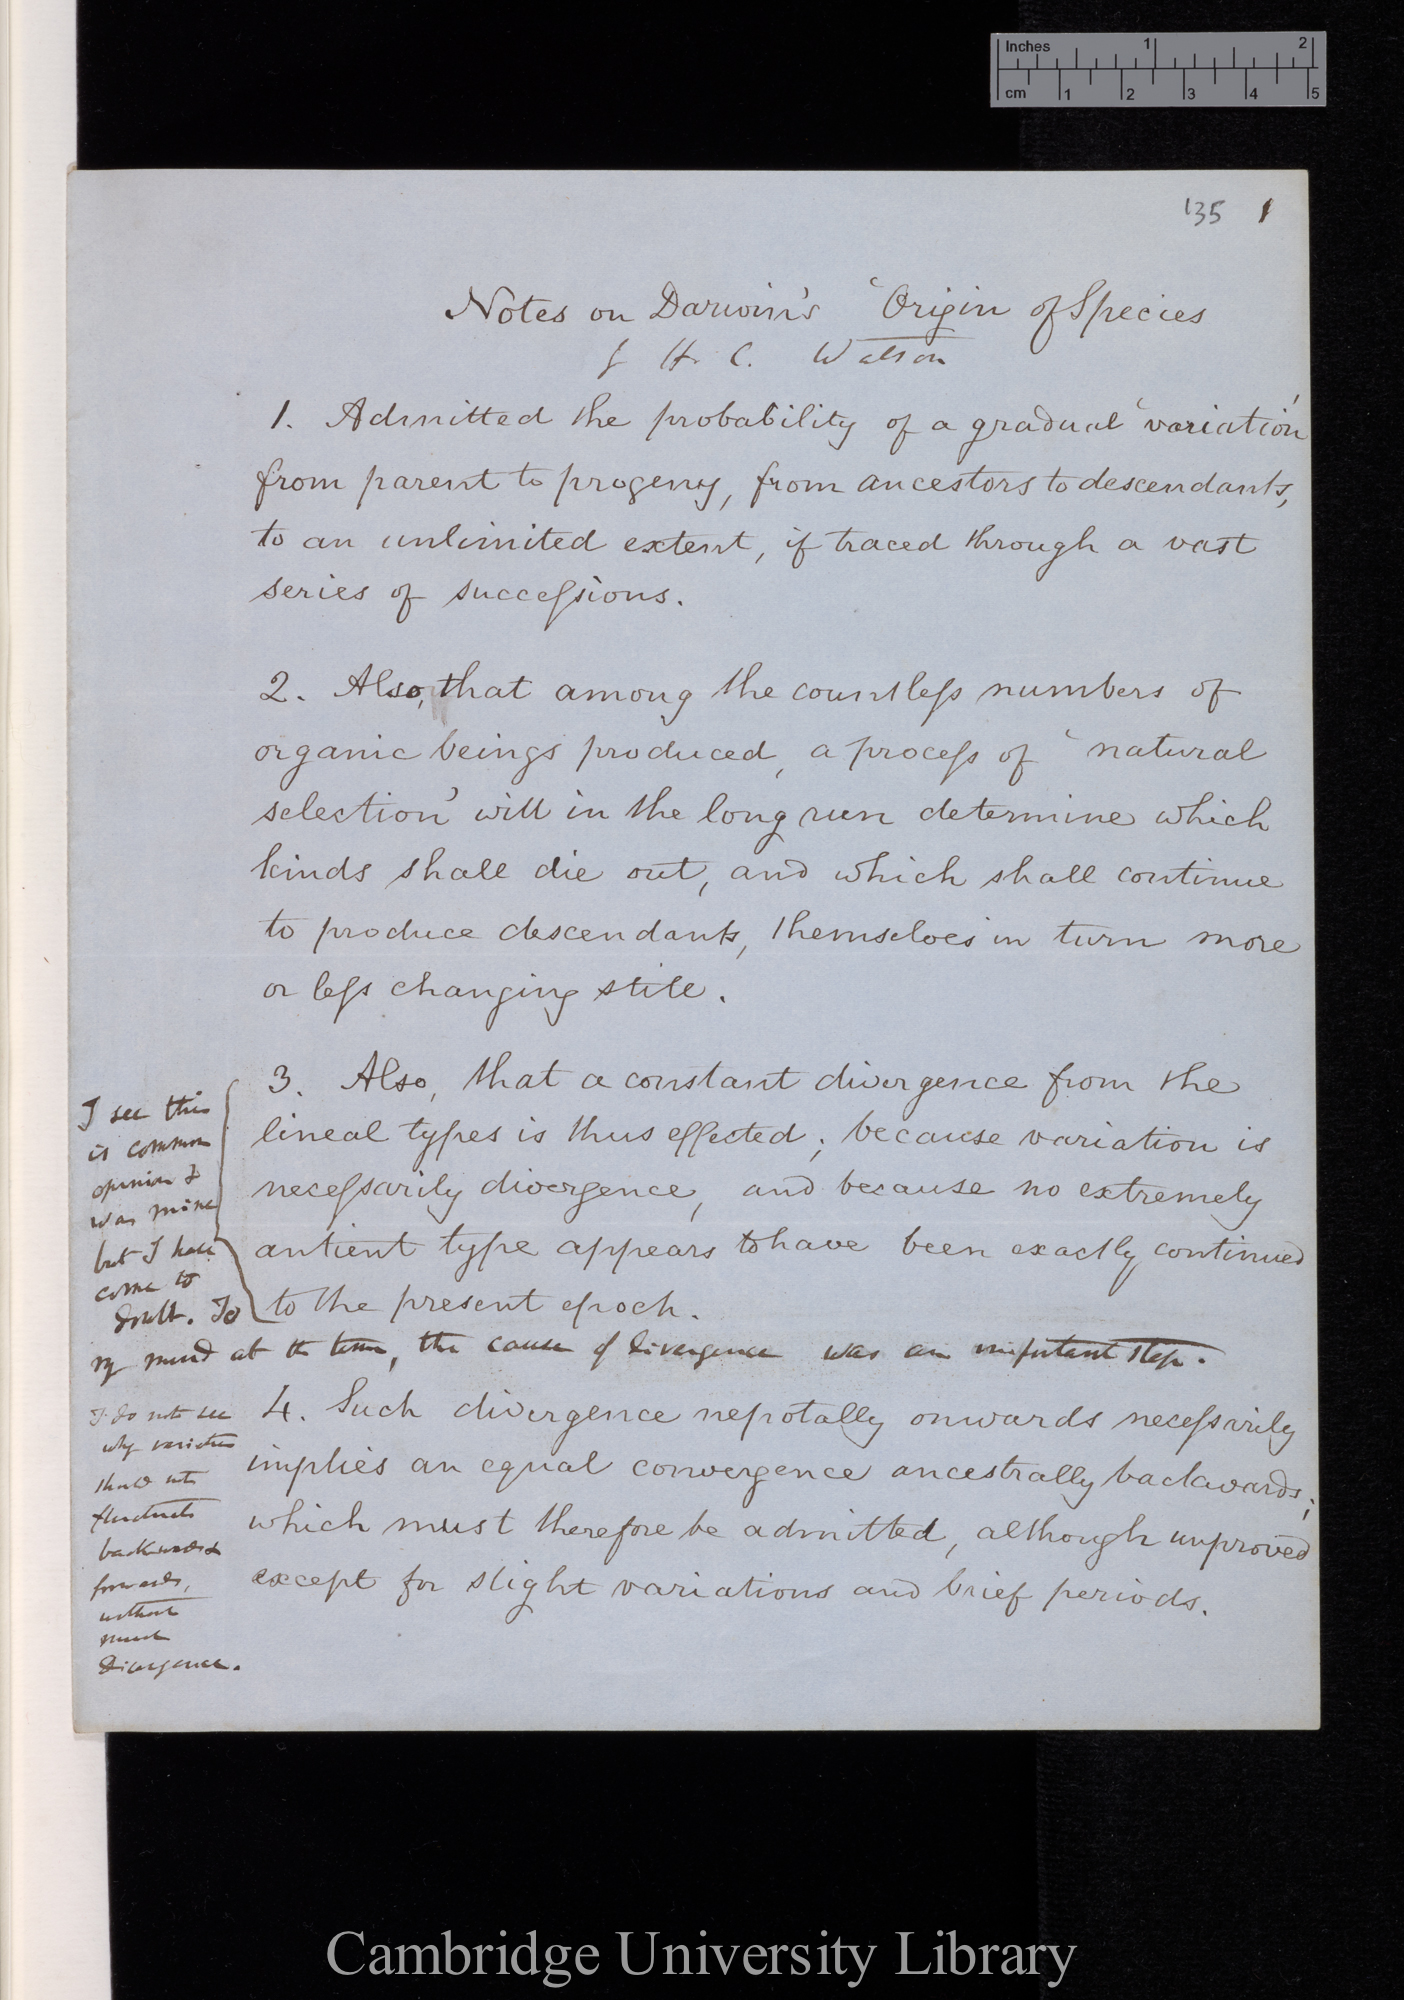 Inches 1 2
cm 1 2 3 4 5
135 1
Notes on Darwin's 'Origin of Species
by H. C. Watson
1. Admitted the probability of a gradual 'variation'
from parent to progeny, from ancestors to descendants,
to an unlimited extent, if traced through a vast
series of succeſsions.
2. Also, that among the countleſs numbers of
organic beings produced, a proceſs of 'natural
selection' will in the long run determine which
kinds shall die out, and which shall continue
to produce descendants, themselves in turn more
or leſs changing still.
3. Also, that a constant divergence from the
lineal types is thus effected; because variation is
neceſsarily divergence, and because no extremely
antient type appears to have been exactly continued
to the present epoch.
I see this
is common
opinion &
was mine
but I have
come to
doubt. To
my mind at the time, the cause of divergence was an important step.
4. Such divergence nepotally onwards neceſsarily
implies an equal convergence ancestrally backwards;
which must therefore be admitted, although unproved
except for slight variations and brief periods.
I do not see
why varieties
should not
fluctuate
backwards &
forwards,
without
much
divergence.
Cambridge University Library